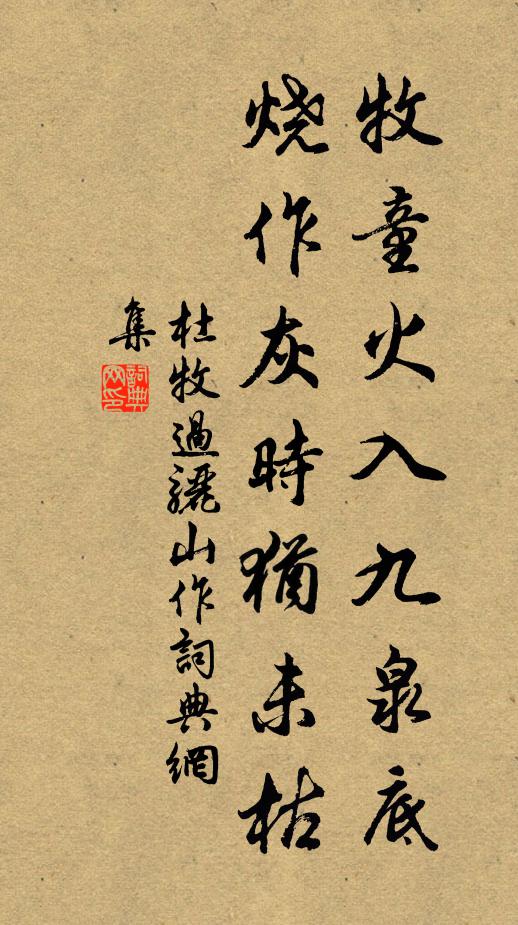 牧童火入九泉底
烧作灰時猶未枯
杜牧過驪山作詞典網
集
詞典網印